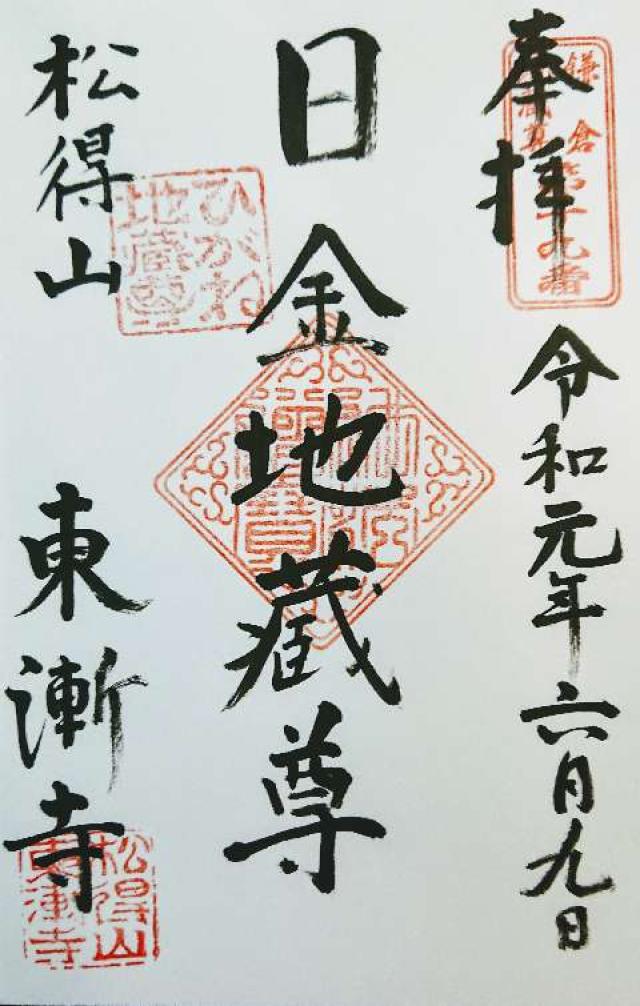 奉拝
令和元年六月九日
日金地蔵尊
松得山
東漸寺
ひがね
地蔵尊
松得山
東漸寺